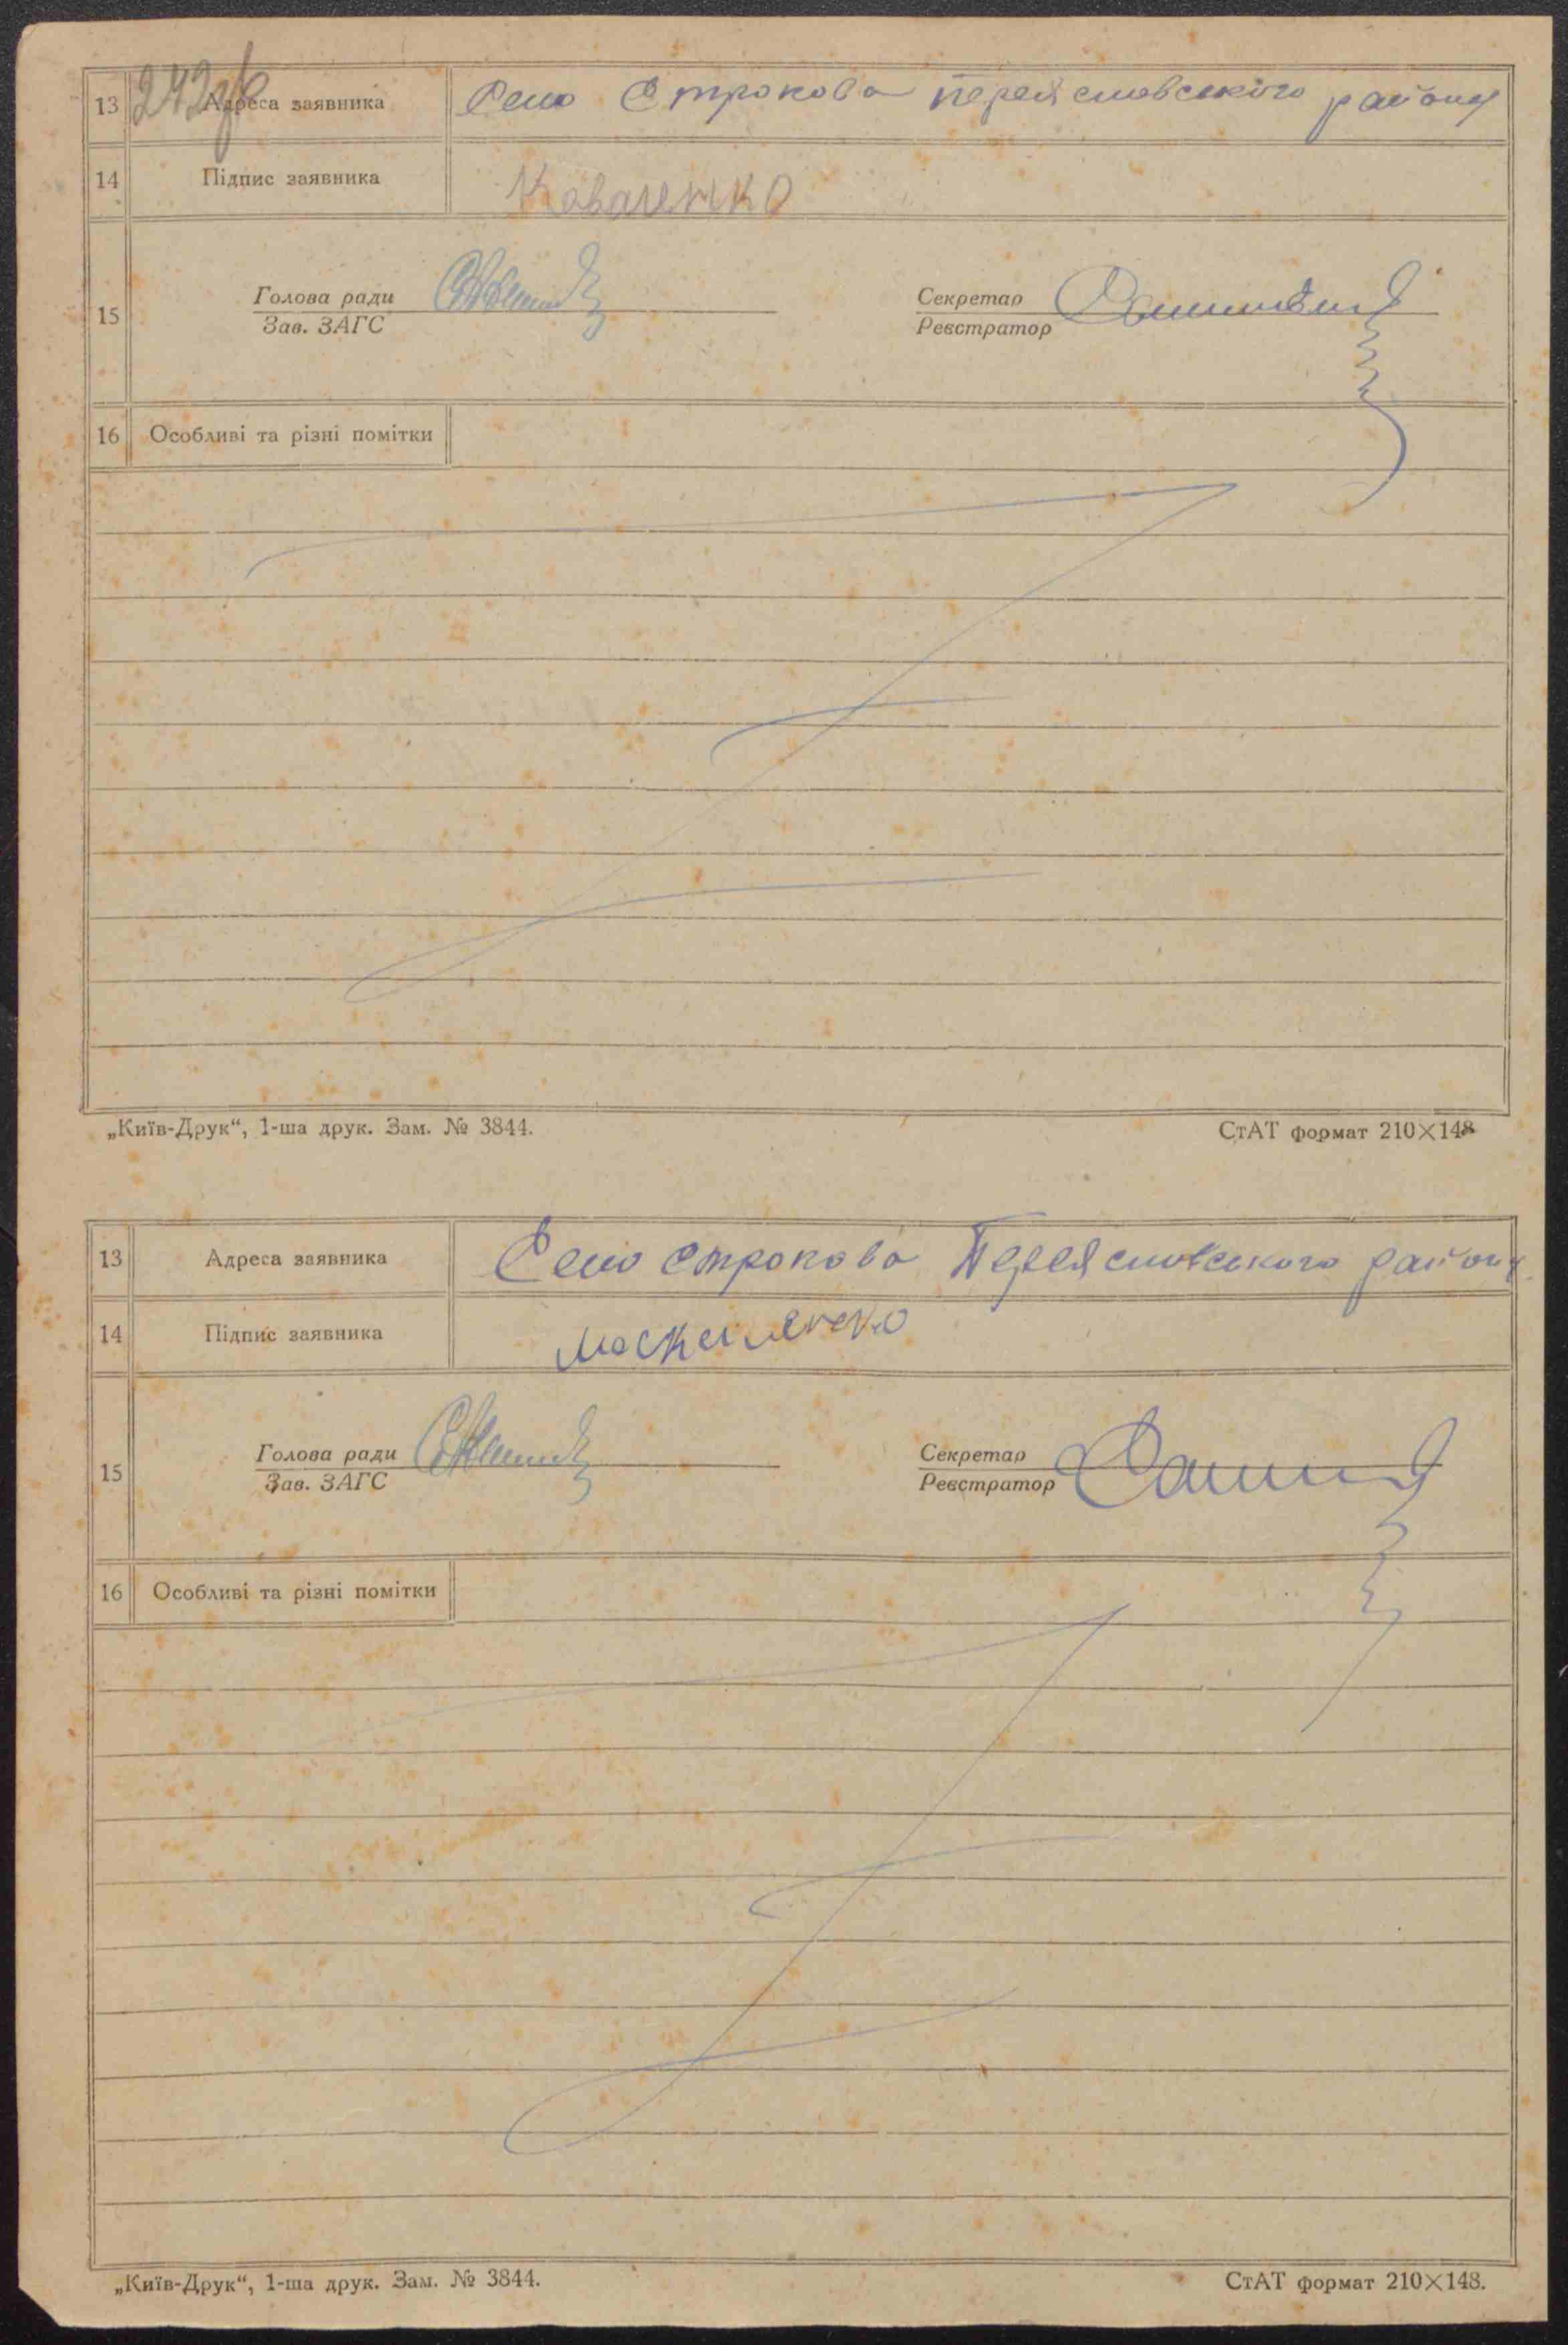 242
13 Адреса заявника Село Строкова переяславського району
14 Підпис заявника Коваленко
15 Голова ради Секретар
Зав. ЗАГС Реєстратор
16 Особливі та різні помітки
„Київ-Друк“, 1-ша друк. Зам. № 3844. СтАТ формат 210×148
13 Адреса заявника Село Строкова Переяславського району
14 Підпис заявника
15 Голова ради Секретар
Зав. ЗАГС Реєстратор
16 Особливі та різні помітки
„Київ-Друк“, 1-ша друк. Зам. № 3844. СтАТ формат 210×148.